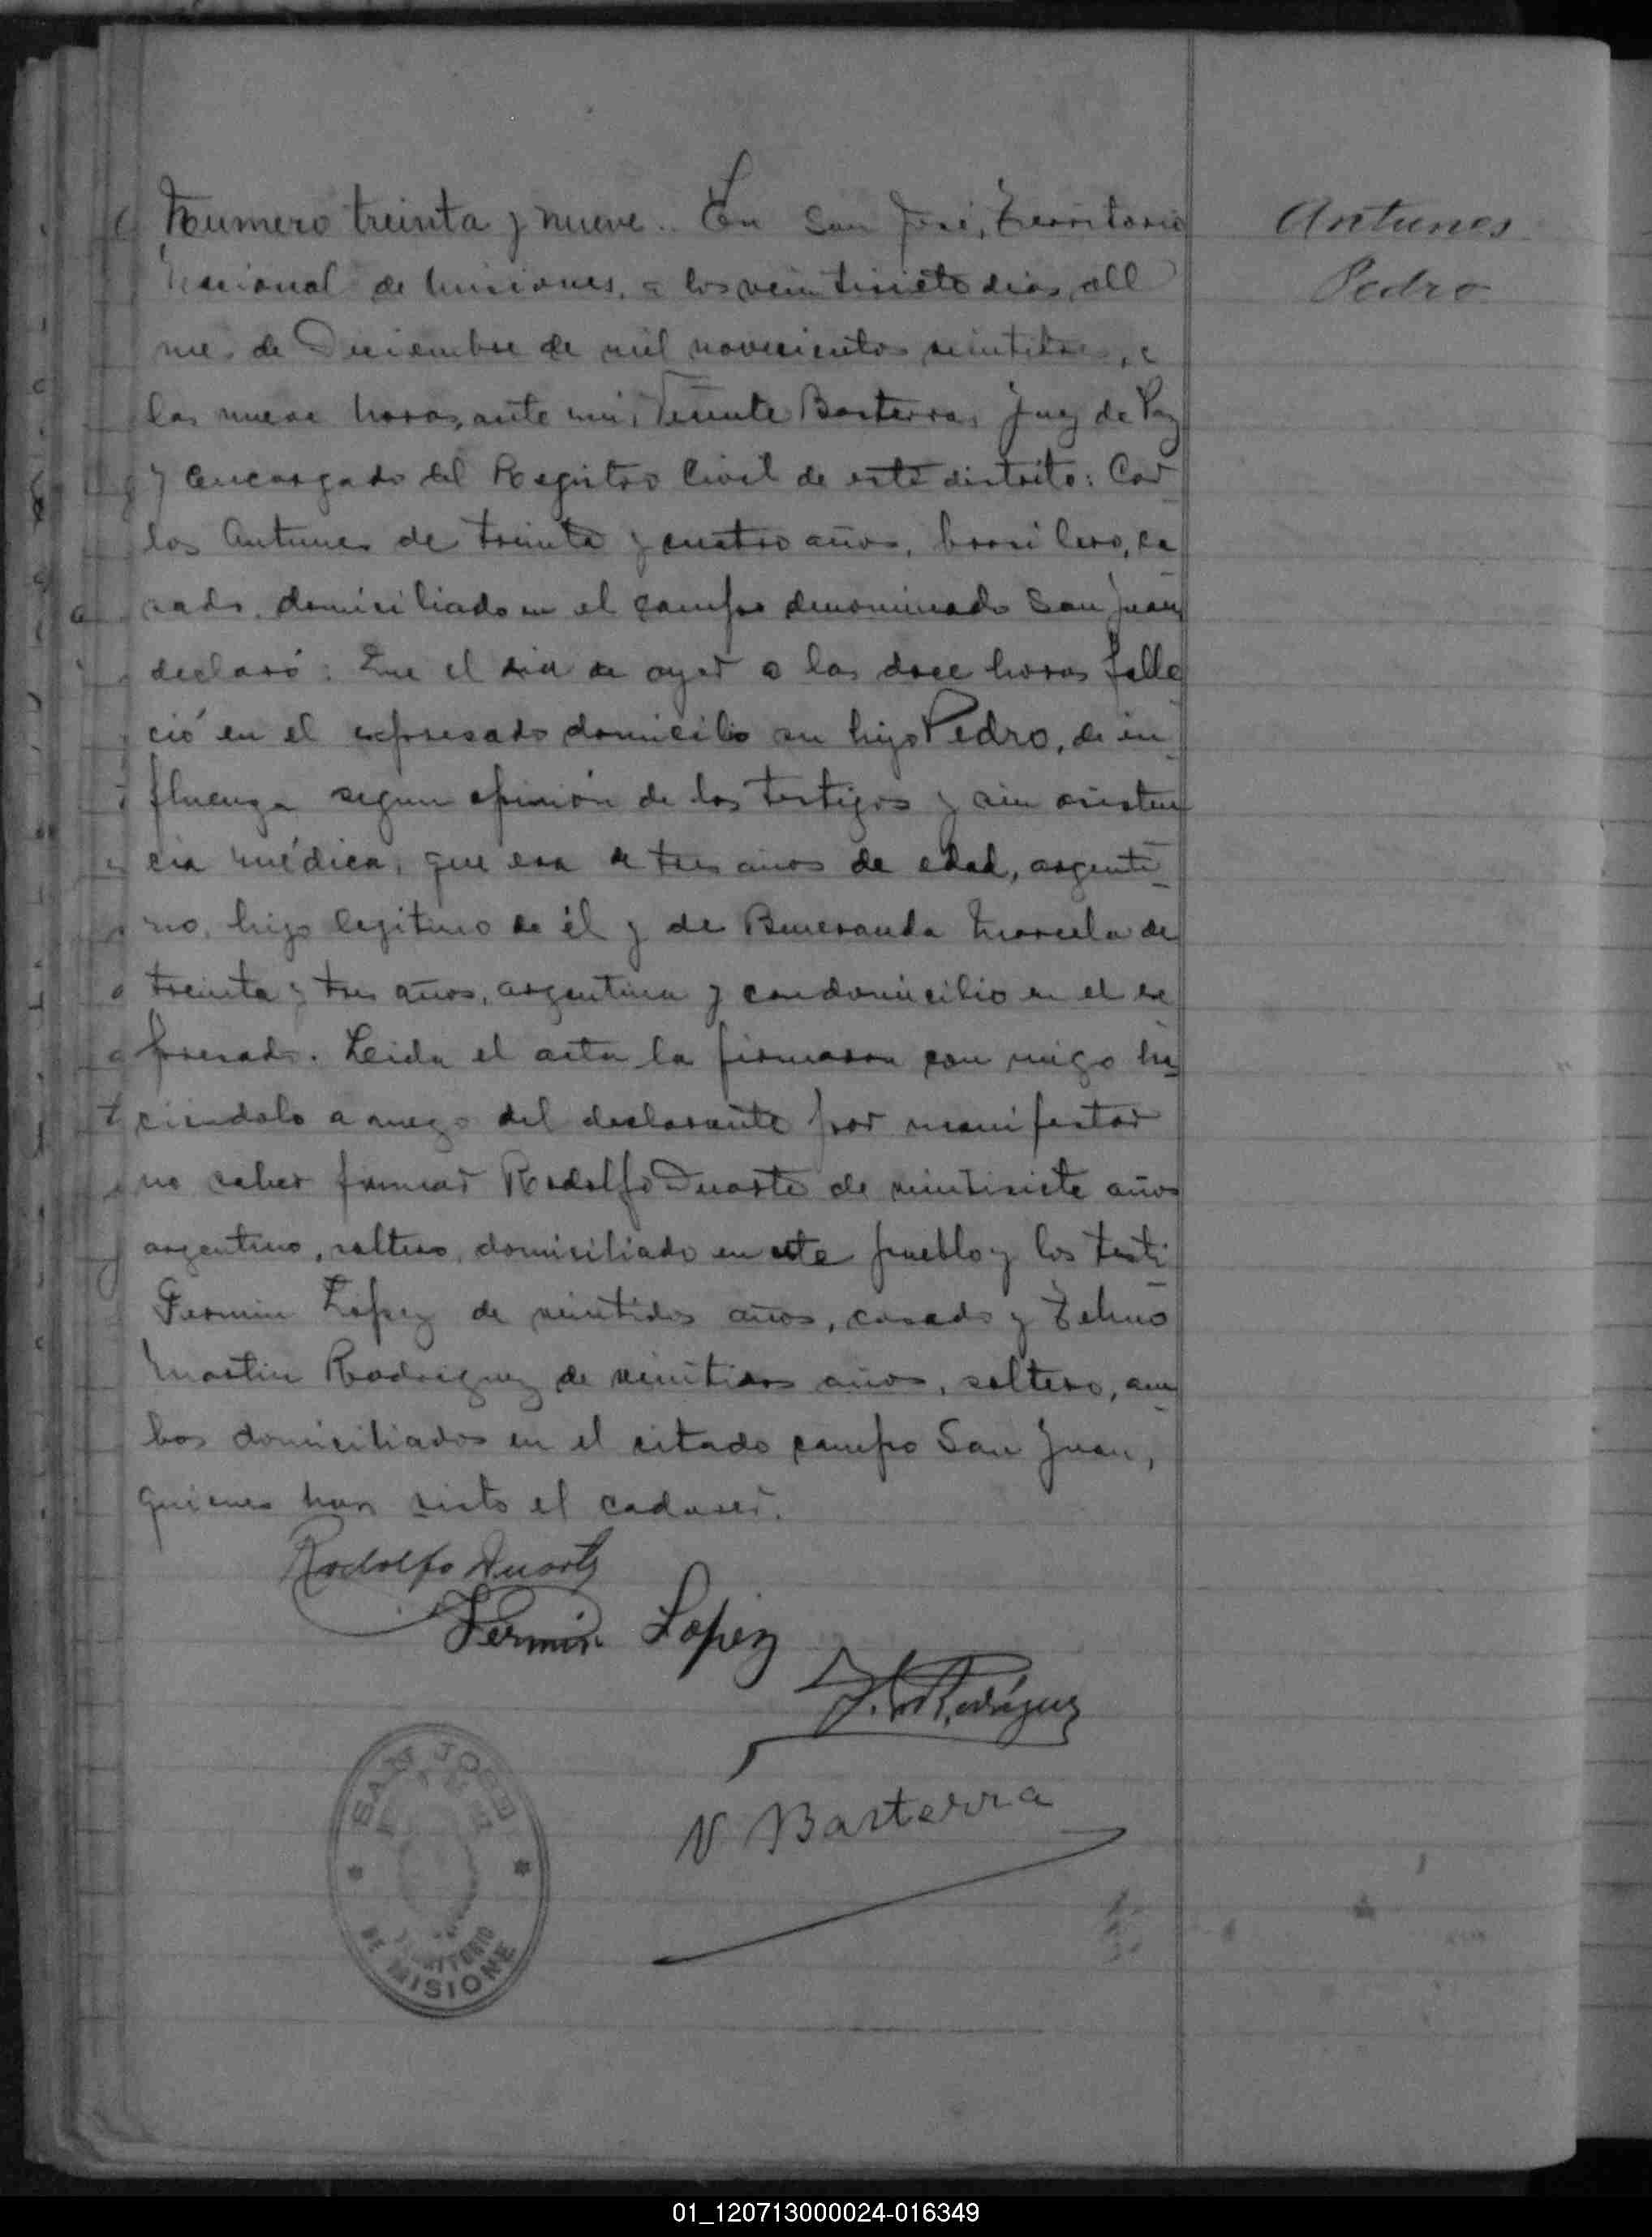 Numero treinta y nueve.. En San José, Territorio
Nacional de Misiones, a los veintisiete dias del
mes de Diciembre de mil novecientos, a
las nueve horas, ante mi, Vicente Basterra, Juez de Paz
y encargado del Registro Civil de este distrito: Car
los Antunes de treinta y cuatro años, brasilero, ca
sado, domiciliado en el campo denominado San Juan
declaró: Que el dia de ayer a las doce horas falle
ció en el expresado domicilio su hijo Pedro, de in
fluenza segun opinión de los testigos y sin asisten
cia médica, que era de tres años de edad, argenti
no, hijo legitimo de él y de de
treinta y tres años, argentina y con domicilio en el ex
presado. Leida el acta la firmaron con migo ha
ciendolo a ruego del declarante por manifestar
no saber firmar Rodolfo Duarte de veintisiete años
argentino, soltero, domiciliado en este pueblo y los testi
Fermin Lopez de veintidos años, casado y Telmo
Martin Rodriguez de años, soltero, am
bos domiciliados en el citado campo San Juan,
quienes han visto el cadaver.
Rodolfo Duarte
Fermin Lopez
T. M. Rodríguez
V Basterra
Antunes
Pedro
SAN JOSE
TERRITORIO
DE MISIONE
01_120713000024-016349